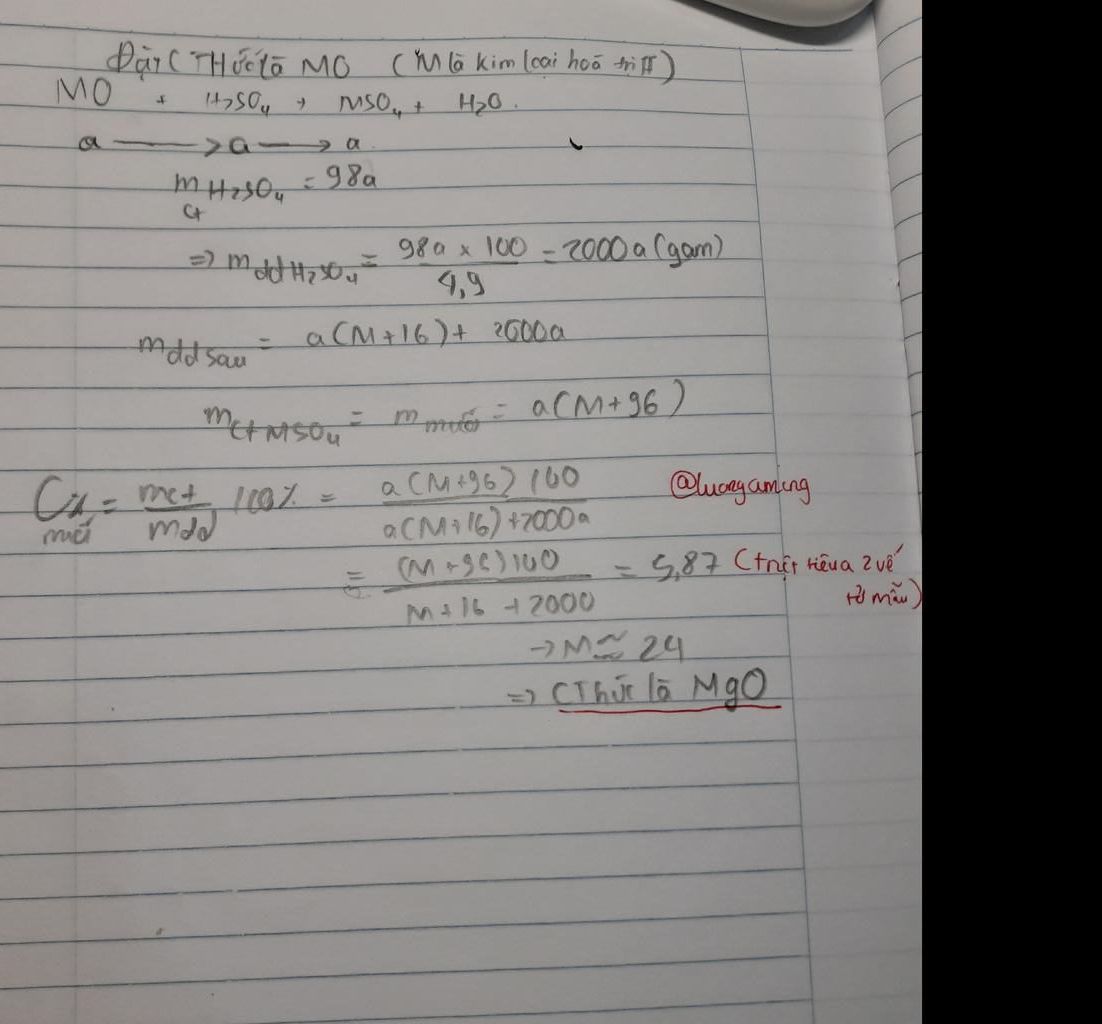 Đặt CTHức là MO (M là kim loại hoá trị II)
MO + H₂SO₄ → MSO₄ + H₂O.
a → a → a
mct H₂SO₄ = 98a
⇒ mdd H₂SO₄ = 98a × 100 / 4,9 = 2000a (gam)
mdd sau = a(M+16) + 2000a
mct MSO₄ = m muối = a(M+96)
C% muối = mct / mdd 100% = a(M+96)100 / a(M+16)+2000a @luongamung
= (M+96)100 / M+16+2000 = 5,87 (triệt tiêu a 2 vế
tử mẫu)
→ M ≈ 24
⇒ CThức là MgO